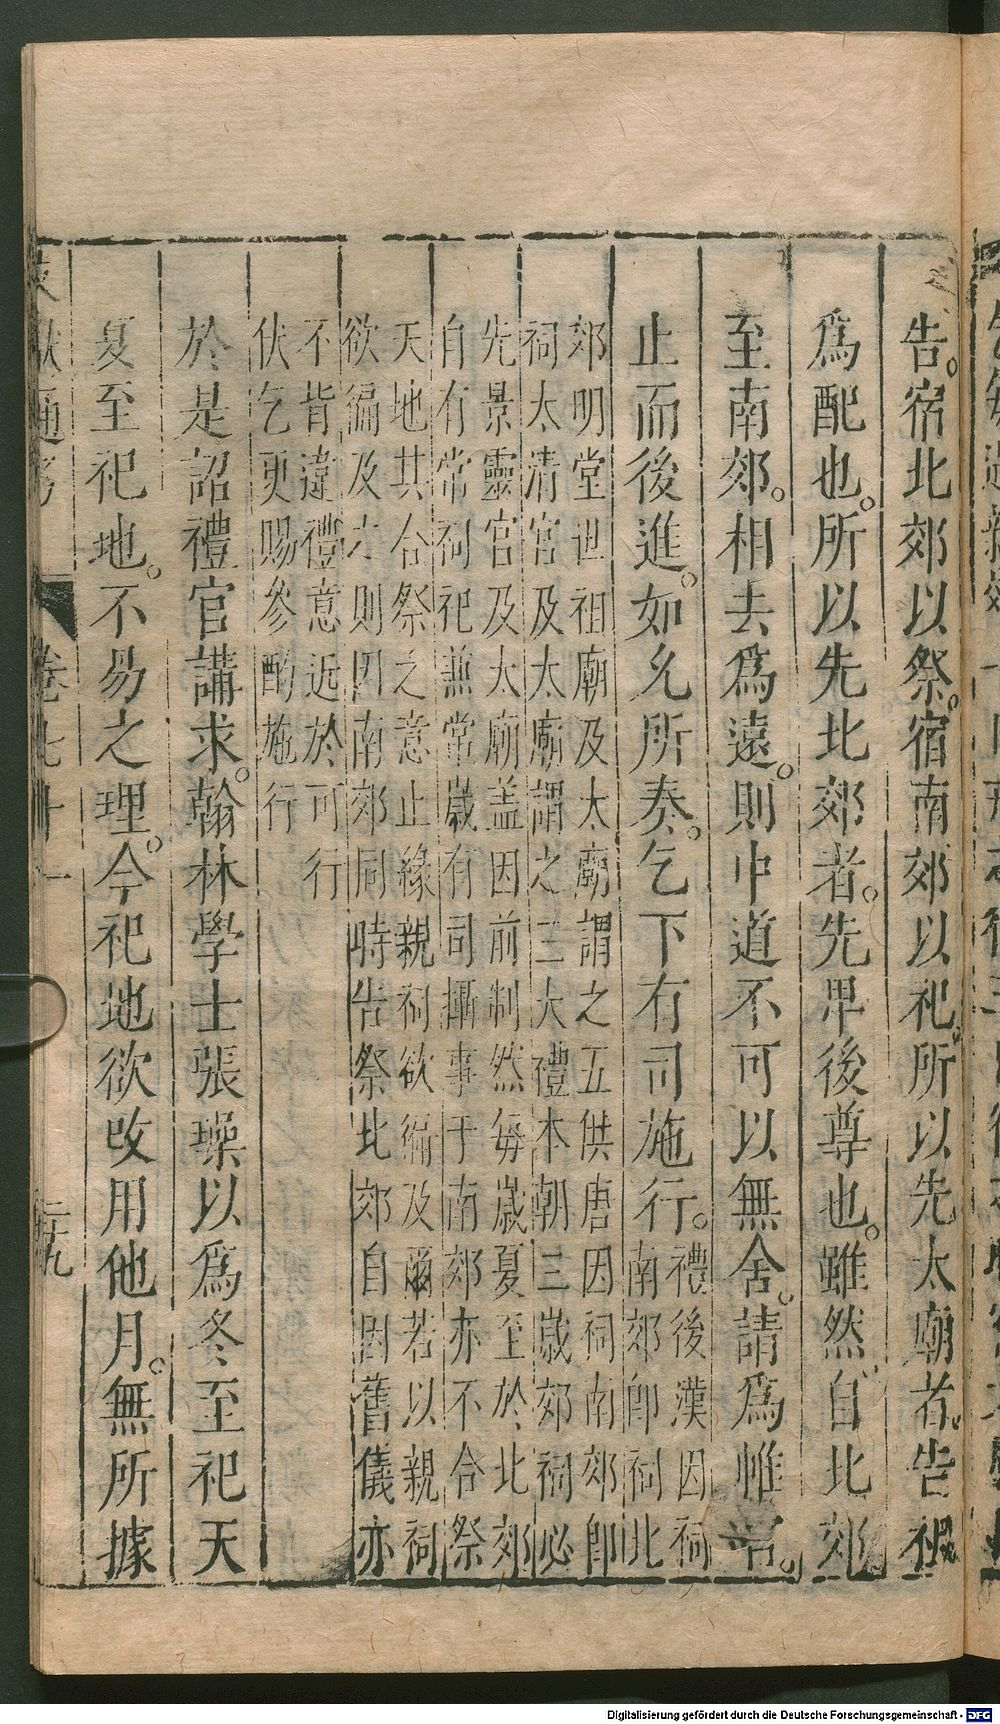 告。宿北郊以祭。宿南郊以祀。所以先太廟者。告祖
爲配也。所以先北郊者。先卑後尊也。雖然。自北郊
至南郊。相去爲遠。則中道不可以無舍。請爲帷宮。
止而後進。如允所奏。乞下有司施行。
禮後漢因祠
南郊即祠北
郊明堂世祖廟及太廟謂之五供唐因祠南郊即
祠太清宮及太廟謂之三大禮本朝三歲郊祠必
先景靈宮及太廟盖因前制然每歲夏至於北郊
自有常祠祀兼常歲有司攝事于南郊亦不合祭
天地其合祭之意止緣親祠欲徧及爾若以親祠
欲徧及之則因南郊同時告祭北郊自因舊儀亦
不背違禮意近於可行
伏乞更賜參酌施行
於是詔禮官講求。翰林學士張璪以爲冬至祀天
夏至祀地。不易之理。今祀地欲改用他月。無所據
文獻通考 卷七十一 二十九
Digitalisierung gefördert durch die Deutsche Forschungsgemeinschaft - DFG